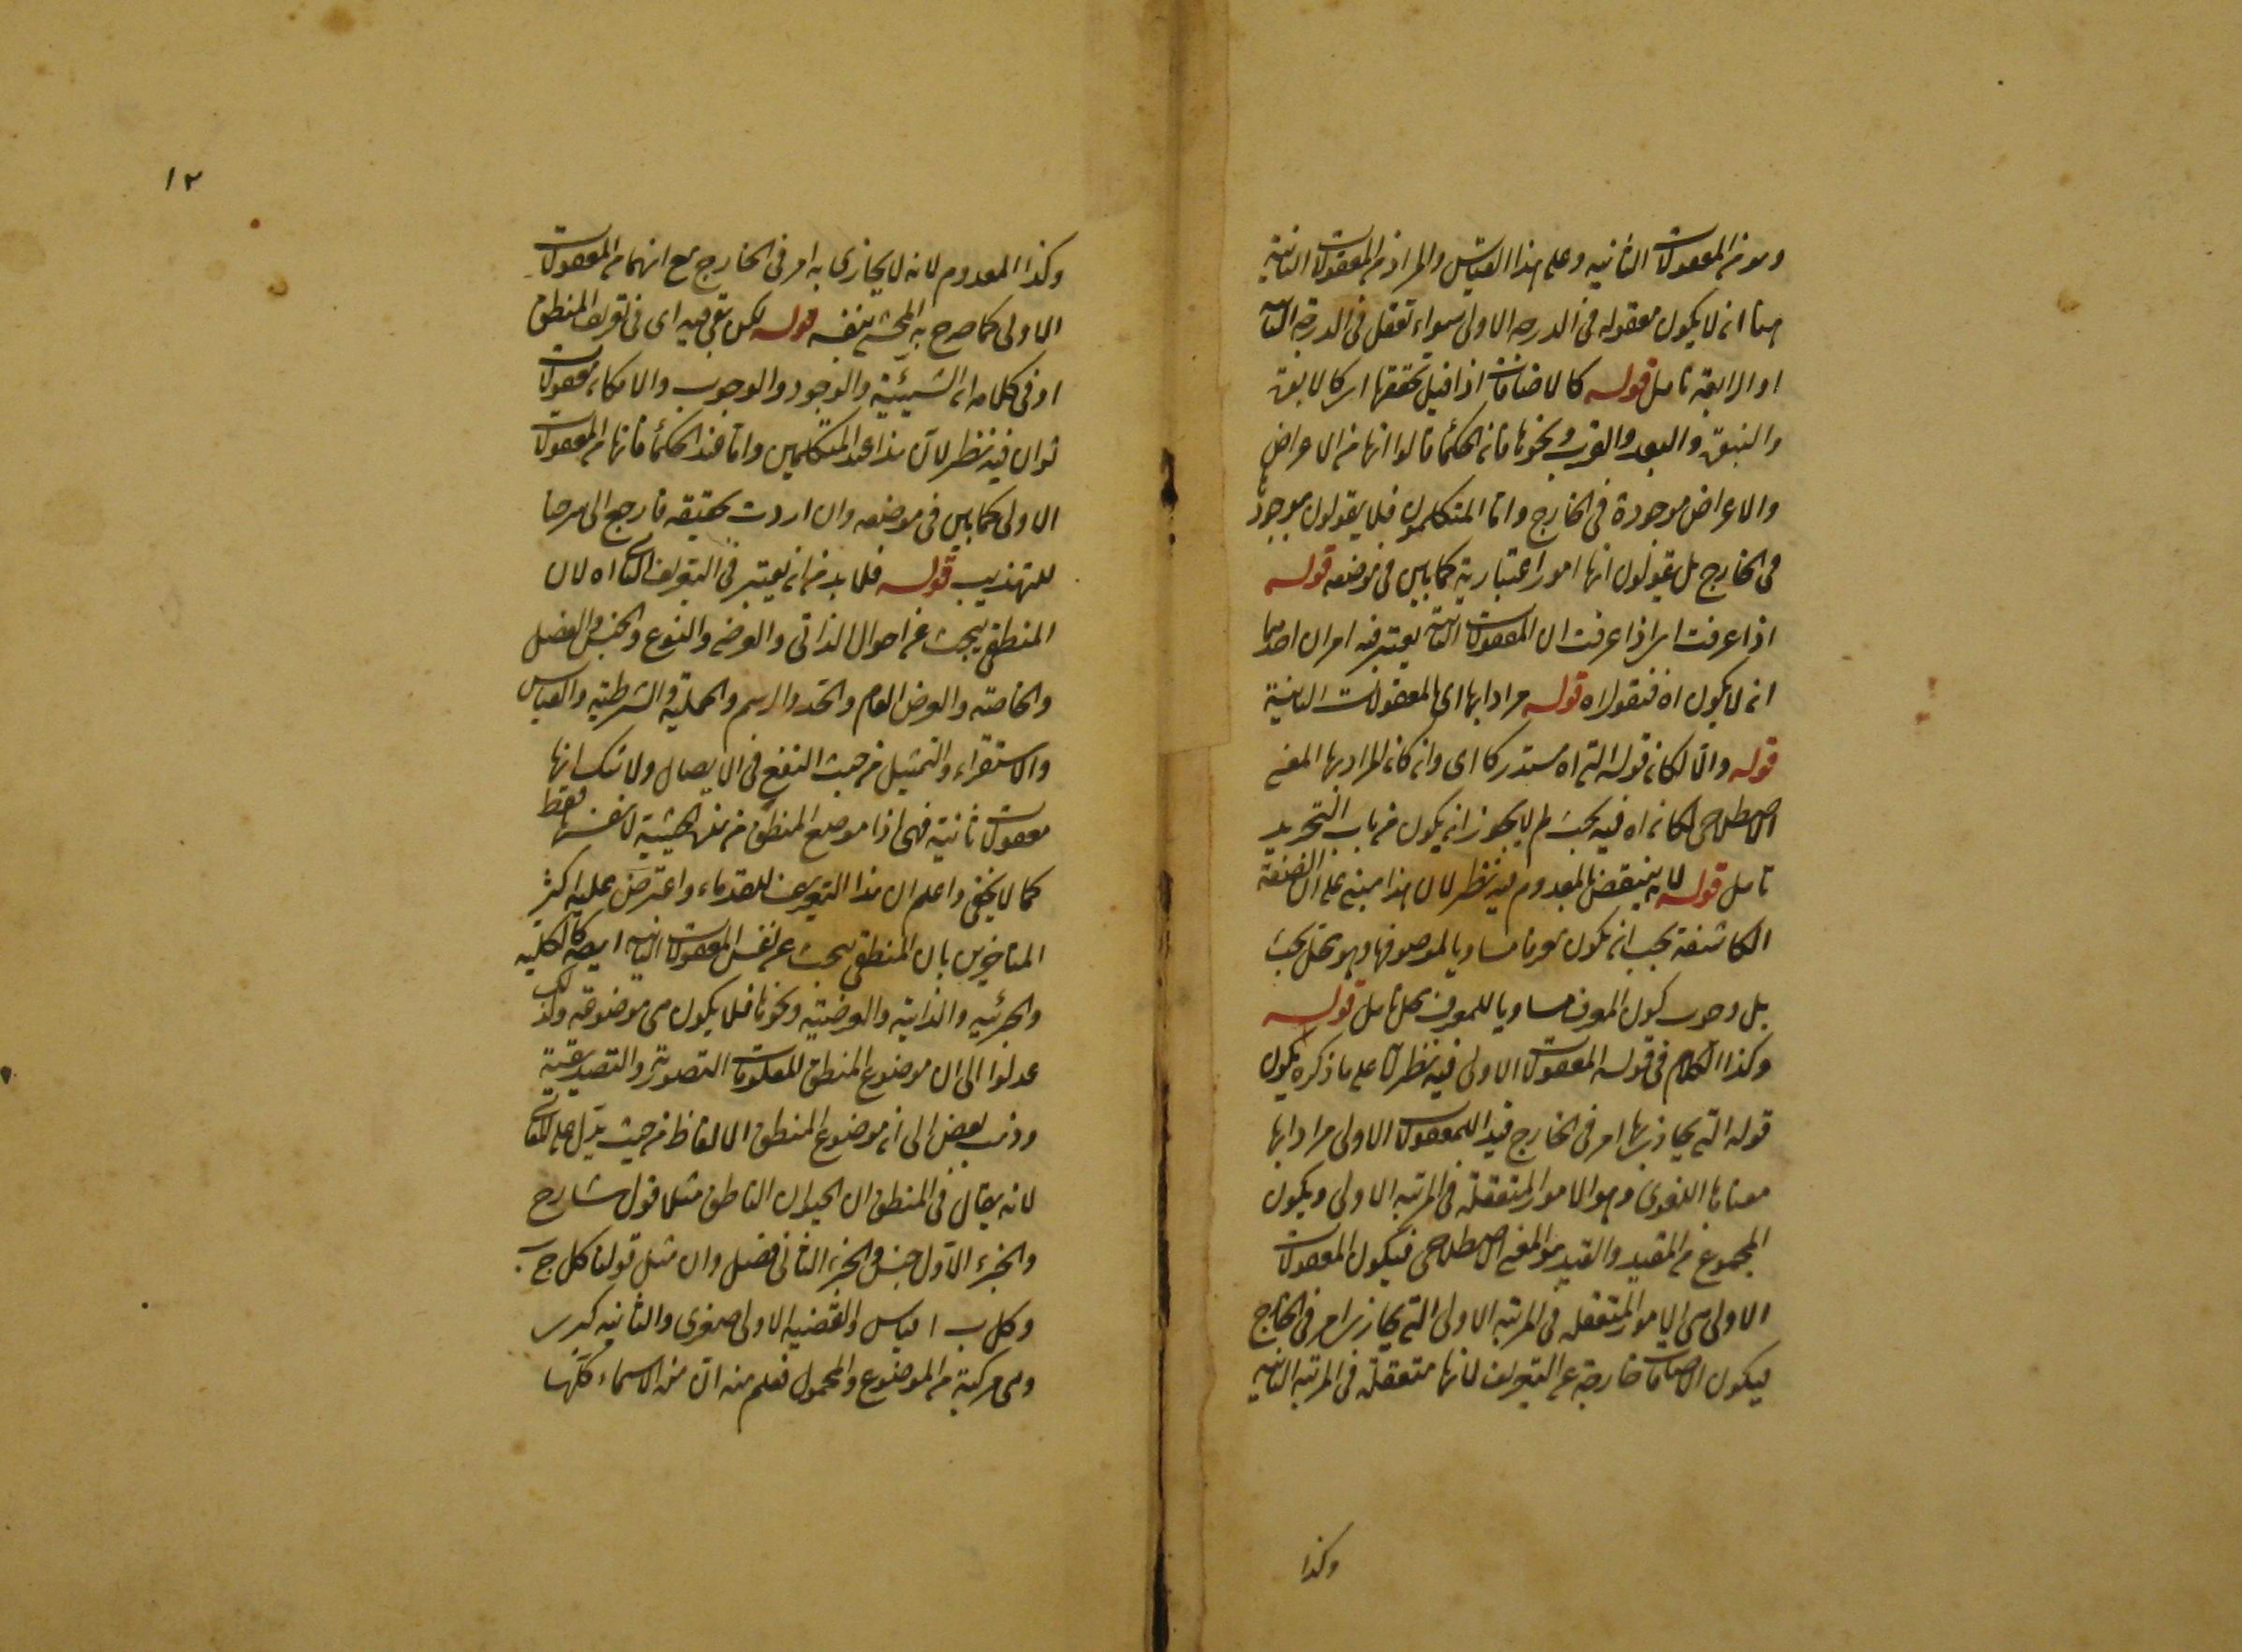 وهو من المعقولات الثانيه وعلى هذا القياس والمراد من المعقولات الثانية
هنا ان لا يكون معقوله فى الدرجه الاولى سواء تعقل فى الدرجة الثانية
او الرابعة تامل قوله كالاضافات اذا قيل بتحققها
والبعد والقرب ونحوها فان الحكماء قالوا انها من الاعراض
والاعراض موجودة فى الخارج واما المتكلمون فلا يقولون بوجودها
فى الخارج بل يقولون انها امور اعتبارية كما بين فى موضعه قوله
اذا عرفت اى اذا عرفت ان المعقولات الثانية يعتبر فيه امران احدهما
ان لا يكون اه فنقول اه قوله مرادا بها اى بالمعقولات الثانية
قوله والا لكان قوله التى اه مستدركا اى وان كان المراد بها المعنى
الاصطلاحى لكان اه فيه بحث لم لا يجوز ان يكون من باب التجريد
تامل قوله لانه ينتقض بالمعدوم فيه نظر لان هذا مبنى على ان الصفة
الكاشفة يجب ان يكون معرفا مساويا لموصوفها وهو محل بحث
بل وجوب كون المعرف مساويا للمعرف محل تامل قوله
وكذا الكلام فى قوله المعقولات الاولى فيه نظر لان على ما ذكره يكون
قوله التى يحاذى بها امر فى الخارج قيدا للمعقولات الاولى مرادا بها
معناها اللغوى وهو الامور المتعقلة فى المرتبه الاولى ويكون
المجموع من المقيد والقيد هو المعنى الاصطلاحى فيكون المعقولات
الاولى هى الامور المتعقله فى المرتبه الاولى التى يحاذى بها امر فى الخارج
فيكون الاضافات خارجة عن التعريف لانها متعقلة فى المرتبه الثانيه
وكذا
١٢
وكذا المعدوم لانه لا يحاذى به امر فى الخارج مع انهما من المعقولات
الاولى كما صرح به المحشى بنفسه قوله لكن بقى فيه اى فى تعريف المنطق
او فى كلامه ان الشيئية والوجود والوجوب والامكان معقولات
ثوان فيه نظر لان هذا عند المتكلمين واما عند الحكماء فانها من المعقولات
الاولى كما بين فى موضعه وان اردت تحقيقه فارجع الى شرحنا
للتهذيب قوله فلا بد من ان يعتبر فى التعريف الثانى اه لان
المنطقى يبحث عن احوال الذاتى والعرضى والنوع والجنس والفصل
والخاصة والعرض العام والحد والرسم والحملية والشرطية والقياس
والاستقراء والتمثيل من حيث النفع فى الايصال ولا شك انها
معقولات ثانية فهى اذا موضوع المنطق من تلك الحيثية لا نفسها فقط
كما لا يخفى واعلم ان هذا التعريف للقدماء واعترض عليه اكثر
المتاخرين بان المنطقى يبحث عن نفس المعقولات الثانيه ايضا كالكليه
والجزئيه والذاتية والعرضية ونحوها فلا يكون هى موضوعه ولذلك
عدلوا الى ان موضوع المنطق المعلومات التصورية والتصديقية
وذهب بعض الى ان موضوع المنطق الالفاظ من حيث يدل على المعانى
لانه يقال فى المنطق ان الحيوان الناطق مثلا قول شارح
والجزء الاول جنس والجزء الثانى فصل وان مثل قولنا كل ج ب
وكل ب ا قياس والقضيه الاولى صغرى والثانيه كبرى
وهى مركبة من الموضوع والمحمول فعلم منه ان هذه الاسماء كلها